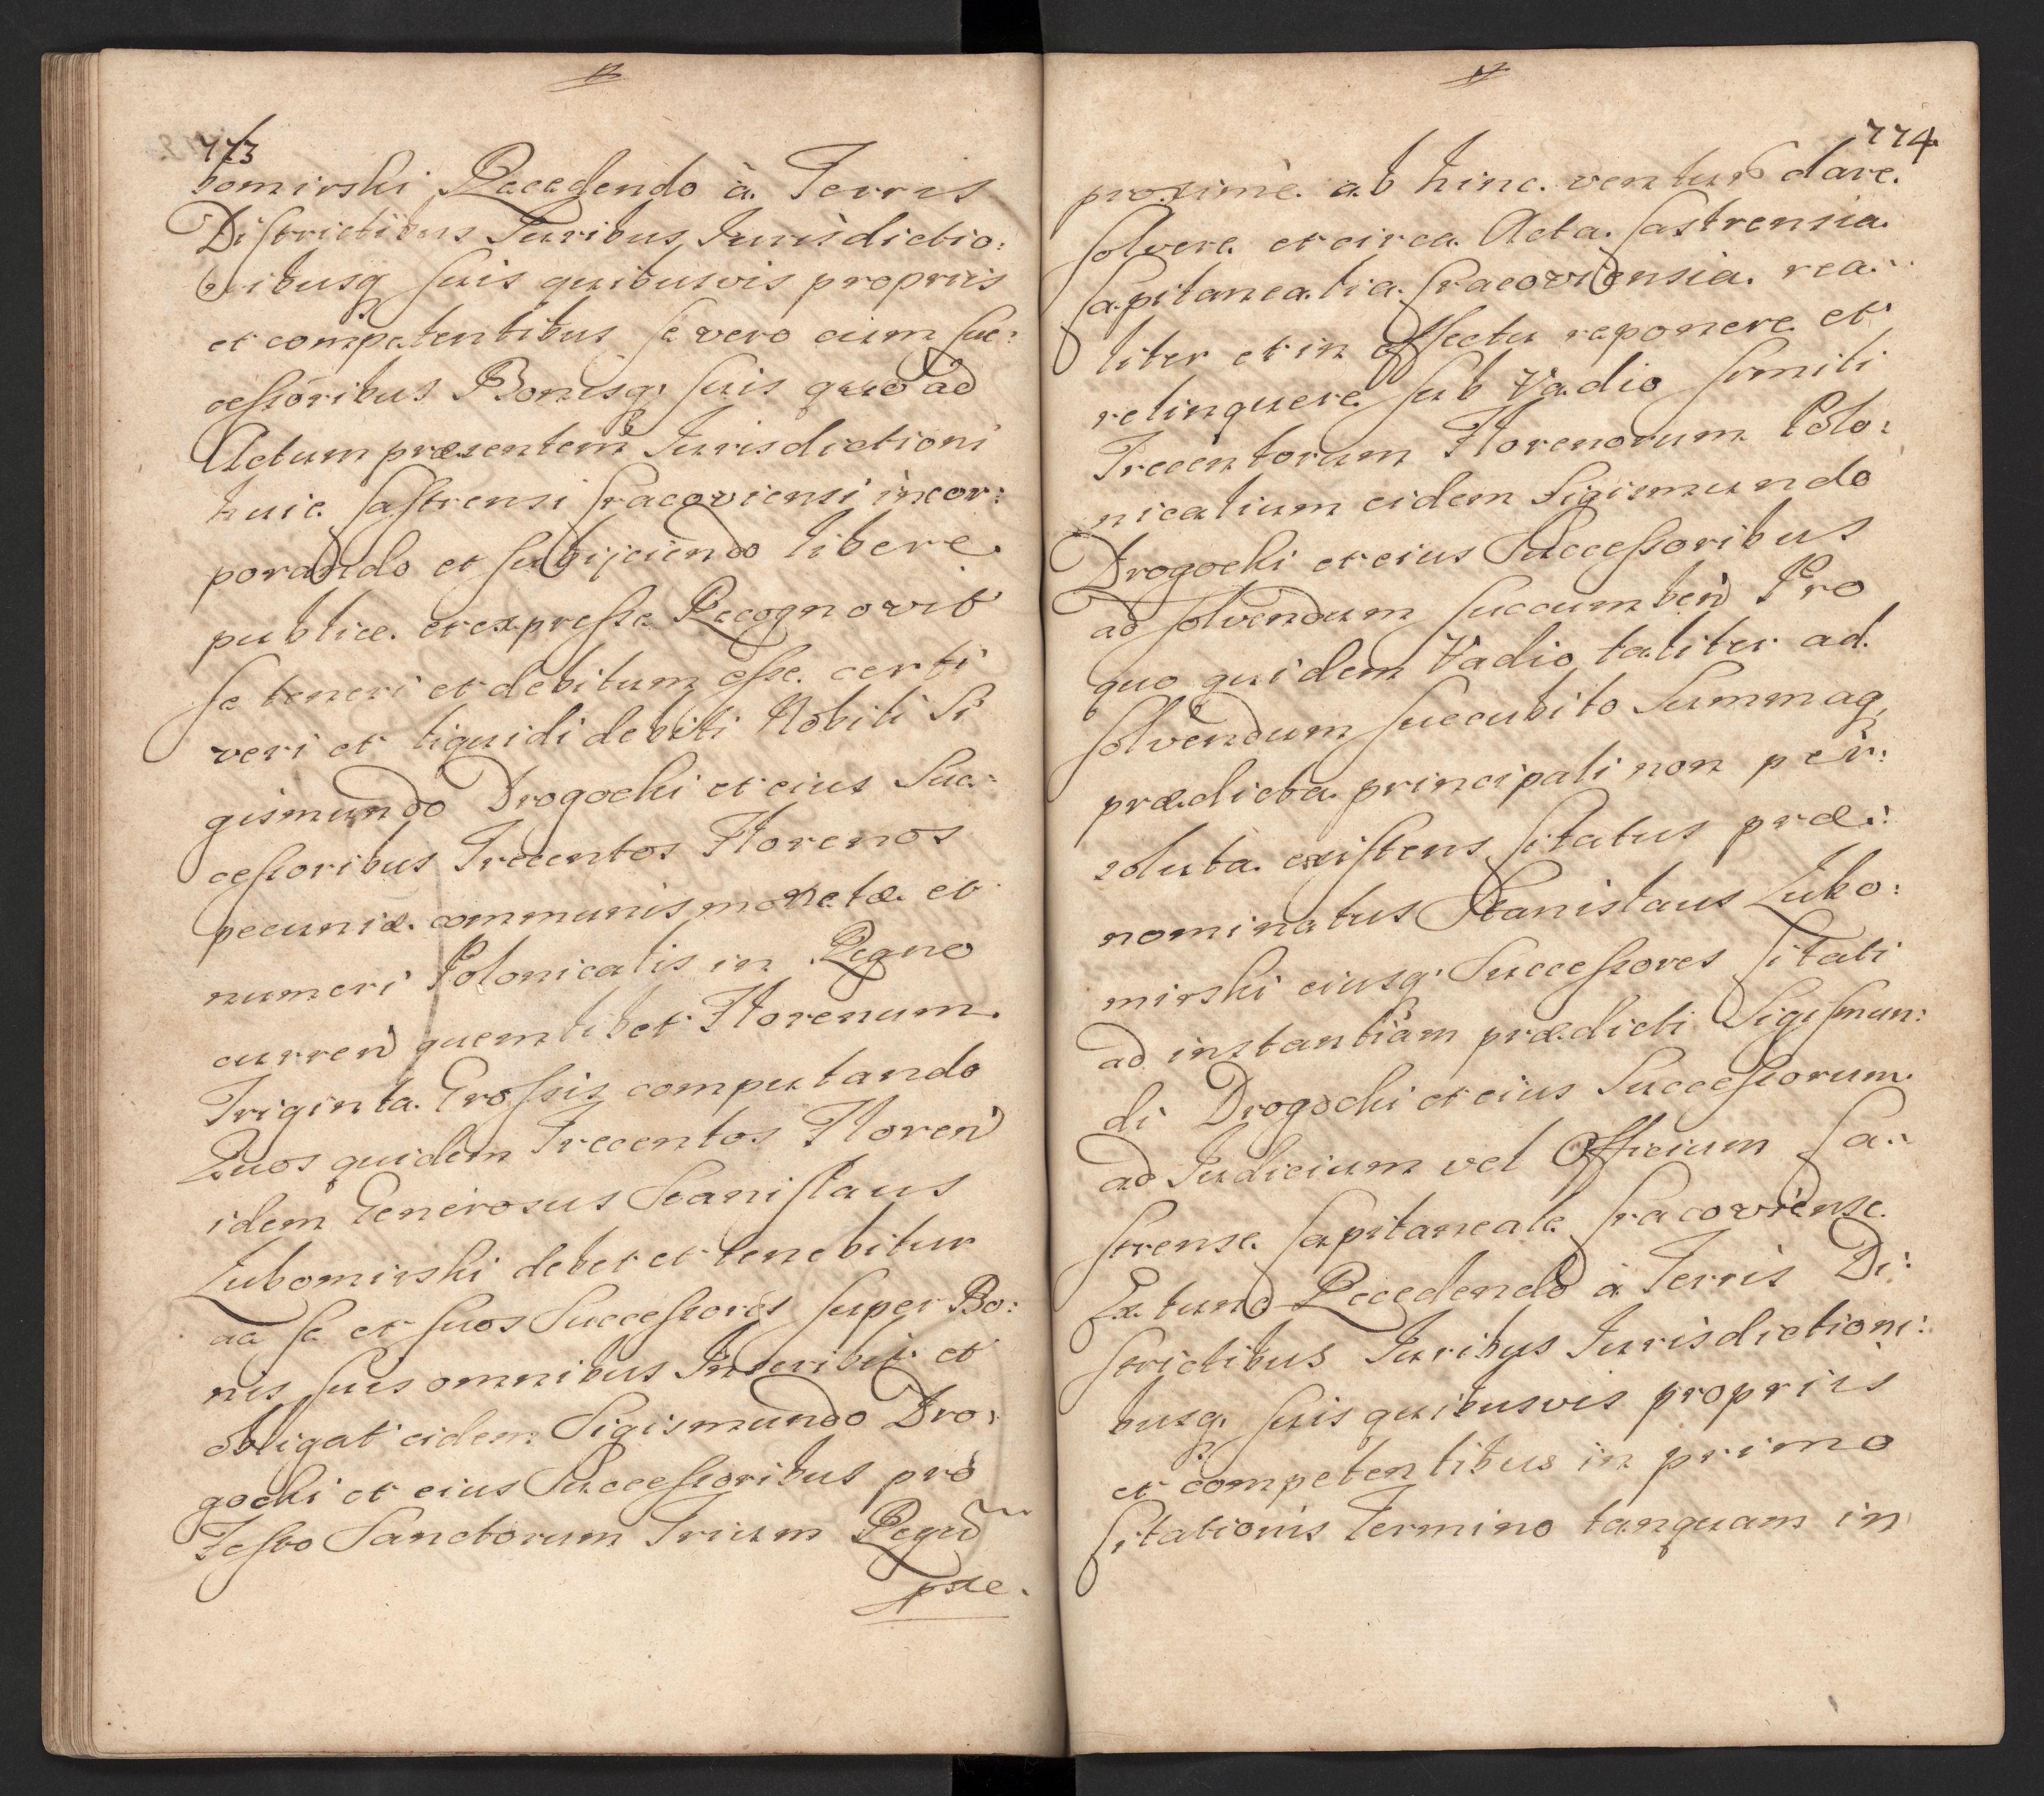 773
bomirski Recedendo à Terris
Districtibus Iuribus Iurisdictio:
nibusq suis quibusvis proprijs
et competentibus se vero cum suc:
cessoribus Bonisq suis quo ad
Actum præsentem Iurisdictioni
huic Castrensi Cracoviensi incor:
porando et subijciendo libere
publice et expresse Recognovit
se teneri et debitum esse certi
veri et liquidi debiti Nobili Si
gismundo Drogocki et eius Suc:
cessoribus Trecentos Florenos
pecuniæ communis monetæ et
numeri Polonicalis in Regno
curren quemlibet Florenum
Triginta Grossis computando
Quos quidem Trecentos Floren
idem Generosus Stanislaus
Lubomirski debet et tenebitur
ac se et suos Successores super Bo:
nis suis omnibus Inscribit et
obligat eidem Sigismundo Dro:
gocki et eius Successoribus pro
Festo Sanctorum Trium Regu
pxe.
774
proxime ab hinc venturo dare
solvere et circa Acta Castrensia
Capitanealia Cracoviensia rea:
liter et in effectu reponere et
relinquere sub Vadio simili
Trecentorum Florenorum Polo:
nicalium eidem Sigismundo
Drogocki et eius Successoribus
ad solvendum succumben Pro
quo quidem Vadio taliter ad
solvendum succubito Summaq
prædicta principali non per:
soluta existens Citatus præ:
nominatus Stanislaus Lubo:
mirski eiusq Successores Citati
ad instantiam prædicti Sigismun:
di Drogocki et eius Successorum
ad Iudicium vel Officium Ca:
strense Capitaneale Cracoviense
Ex tunc Recedendo à Terris Di:
strictibus Iuribus Iurisdictioni:
busq suis quibusvis proprijs
et competentibus in primo
Citationis Termino tanquam in